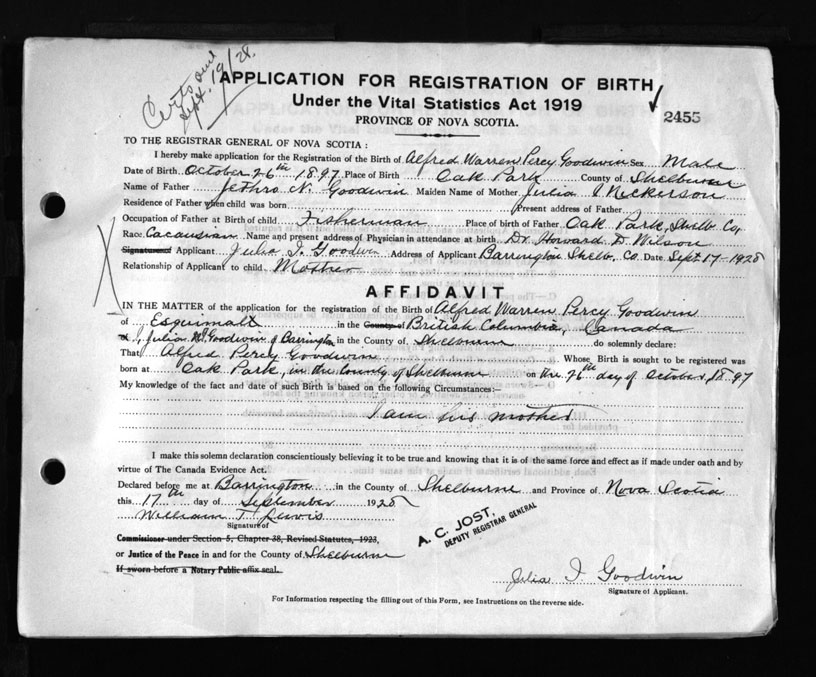 Sept. 19/28.
APPLICATION FOR REGISTRATION OF BIRTH
Under the Vital Statistics Act 1919
2455
PROVINCE OF NOVA SCOTIA.
TO THE REGISTRAR GENERAL OF NOVA SCOTIA :
I hereby make application for the Registration of the Birth of Alfred Warren Percy Goodwin Sex Male
Date of Birth October 26th 1897 Place of Birth Oak Park County of Shelburne
Name of Father Jethro N. Goodwin Maiden Name of Mother Julia I Nickerson
Residence of Father when child was born Present address of Father
Occupation of Father at Birth of child Fisherman Place of birth of Father Oak Park, Shelb. Co,
Race Cacausian Name and present address of Physician in attendance at birth Dr Howard D. Wilson
Signature of Applicant Julia I. Goodwin Address of Applicant Barrington Shelb. Co. Date Sept 17-1928
Relationship of Applicant to child Mother
AFFIDAVIT
IN THE MATTER of the application for the registration of the Birth of Alfred Warren Percy Goodwin
of Esquimalt in the County of British Columbia, Canada
I, Julia Goodwin of Barrington in the County of Shelburne do solemnly declare:
That Alfred Percy Goodwin Whose Birth is sought to be registered was
born at Oak Park, in the County of Shelburne on the 26th day of October, 1897
My knowledge of the fact and date of such Birth is based on the following Circumstances:—
I am his mother
I make this solemn declaration conscientiously believing it to be true and knowing that it is of the same force and effect as if made under oath and by
virtue of The Canada Evidence Act.
Declared before me at Barrington in the County of Shelburne and Province of Nova Scotia
this 17th day of September 1928
William T. Lewis
Signature of
A. C. JOST,
DEPUTY REGISTRAR GENERAL
Commissioner under Section 5, Chapter 38, Revised Statutes, 1923,
or Justice of the Peace in and for the County of Shelburne
If sworn before a Notary Public affix seal.
Julia I. Goodwin
Signature of Applicant.
For Information respecting the filling out of this Form, see Instructions on the reverse side.